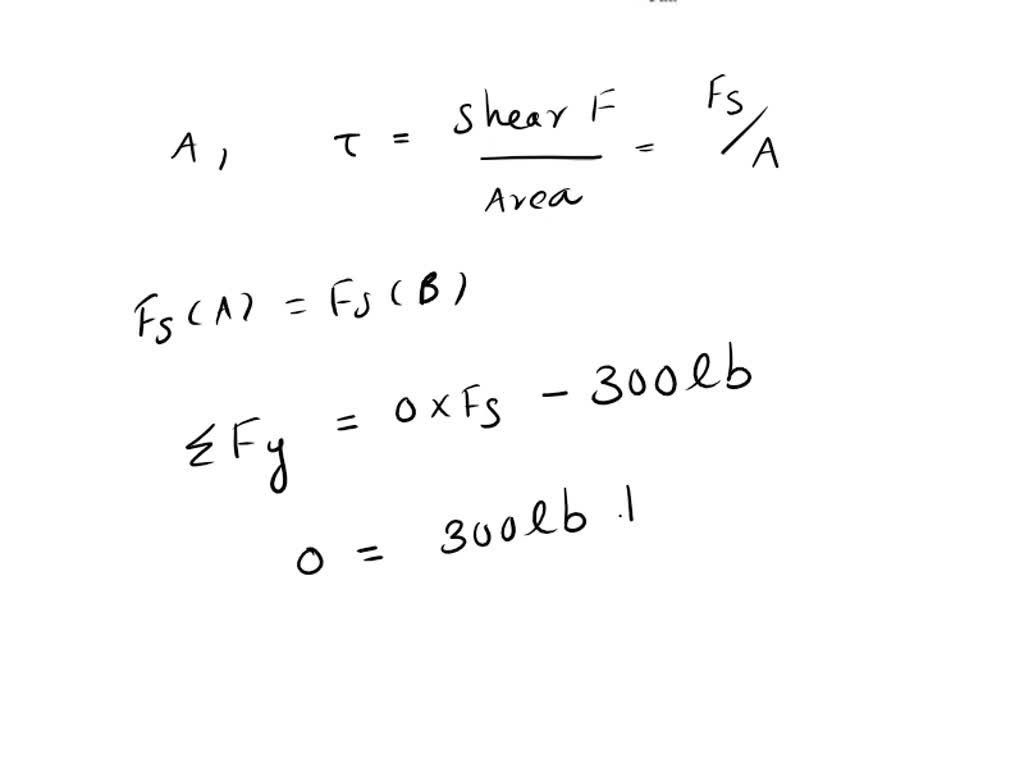 A, τ = Shear F / Area = Fs/A
Fs(A) = Fs(B)
ΣFy = 0 x Fs - 300lb
0 = 300lb .1